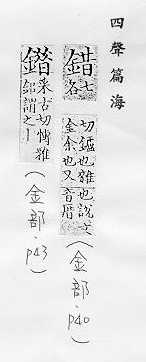 四聲篇海
錯 七各
切鑢也雜也說文
金余也又音厝
(金部·p40)
来古切博雅
謂之
(金部·p43)